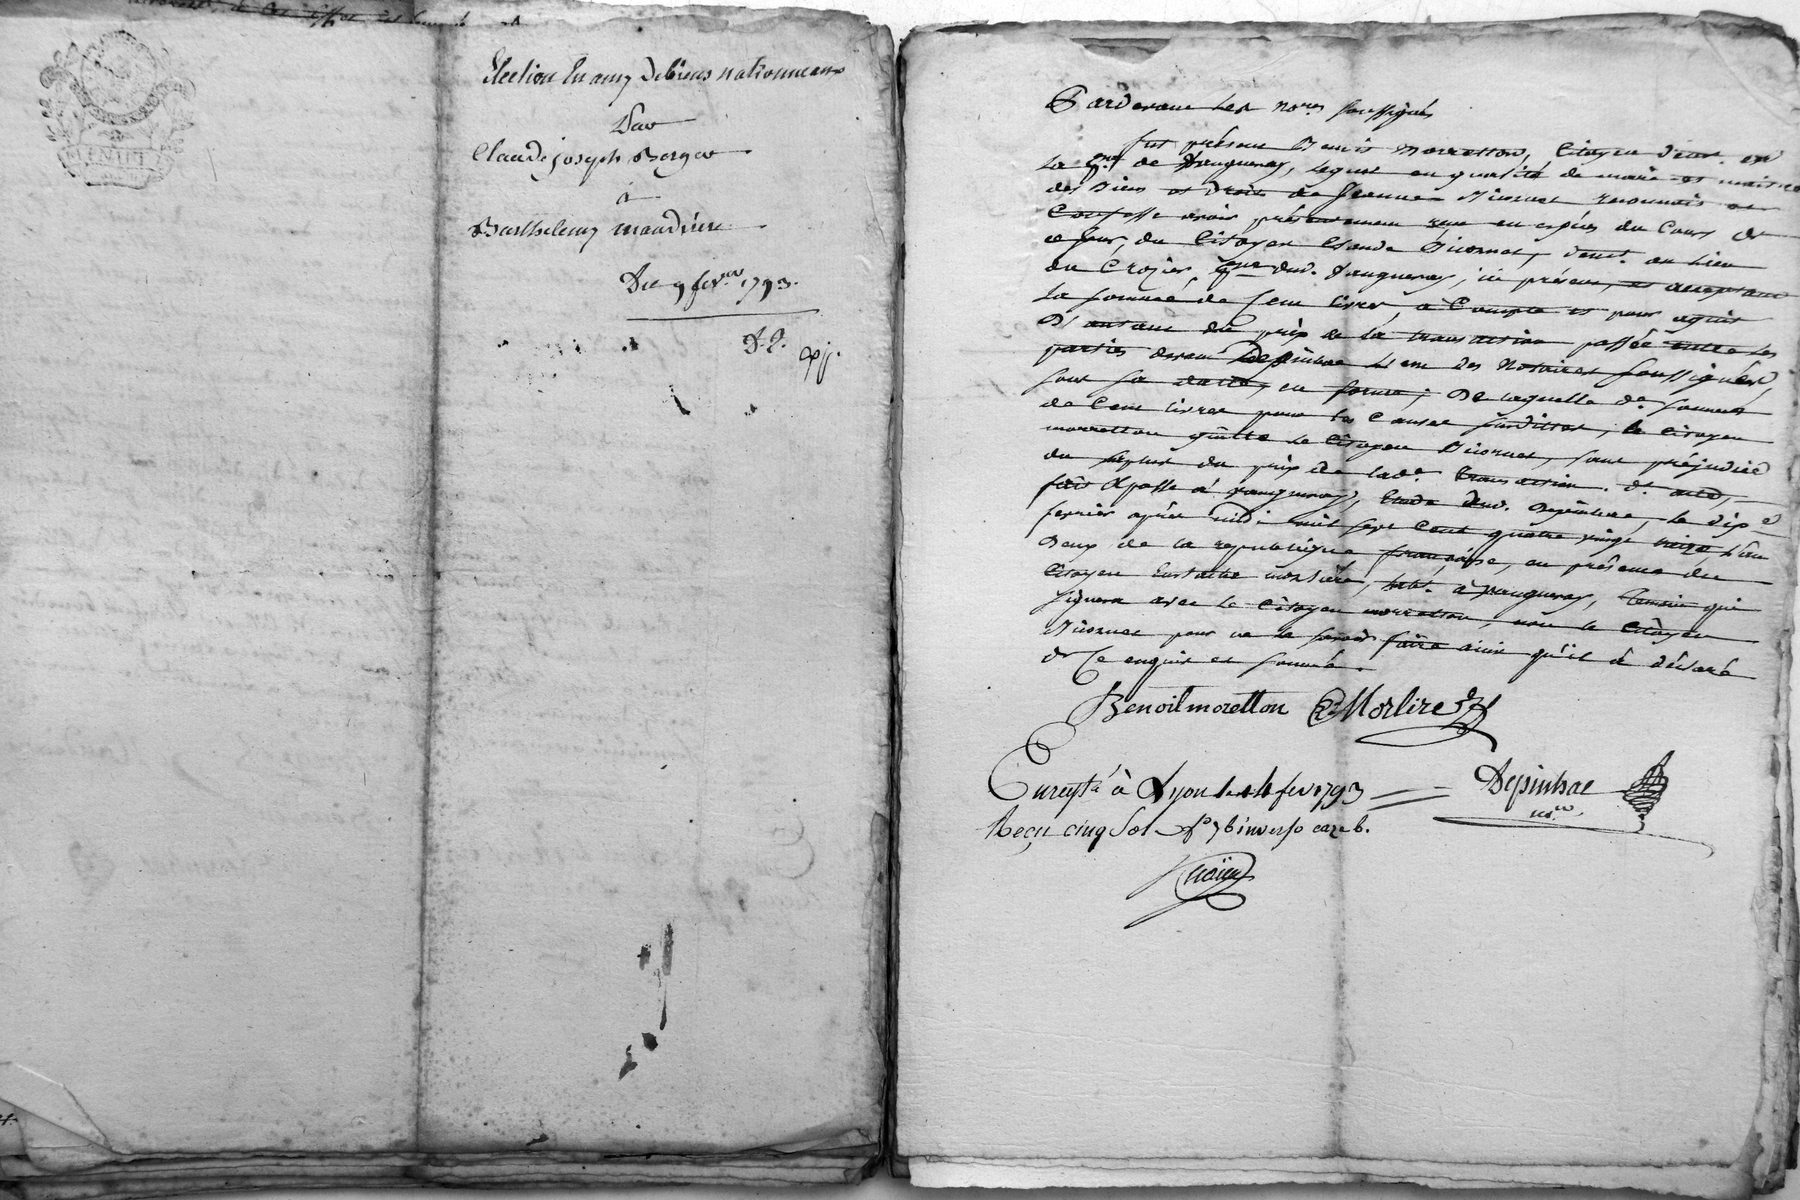 Election en amy de biens nationneaux
Par
Claude joseph Berger
à
Barthelemy maudière
Du 9 fevrier 1793.
Pardevant les nores soussignés
fut présent Benoit morretton, Citoyen demt. en
la pse de Vaugneray, lequel en qualité de mari et maitre
des biens et droits de Jeanne Bicornet reconnois et
Confesse avoir présentement reçu en espèces du Cours de
ce jour, du Citoyen Claude Bicornet, demt. au lieu
du Crozier, pse dud. Vaugneray, ici présent, et acceptant
la somme de Cent livres, à Compte et pour aquit
D'autant du prix de la transaction passée entre les
parties devant Depinhac l'un des Notaires soussignés,
sous sa datte, en forme; De laquelle de. somme
de Cent livres pour les Causes susdittes, le Citoyen
morretton quitte le Citoyen Bicornet, sans préjudice
du surplus du prix de lade. transaction. dt. acte,
fait & passé à Vaugneray, Etude dud. Depinhac, le dix
fevrier après midi mil sept Cent quatre vingt treize l'an
Deux de la republique française, en présence du
Citoyen Eustache morlière, habt. à Vaugneray, temoin qui
signera avec le Citoyen morretton, non le Citoyen
Bicornet pour ne le savoir faire ainsi qu'il a déclaré
de Ce enquis et sommé.
Benoit moretton E. Morlire
Enregté à Lyon le 14 fev 1793 Depinhac
nore
Reçu cinq sol fo 76 inverso caze 6.